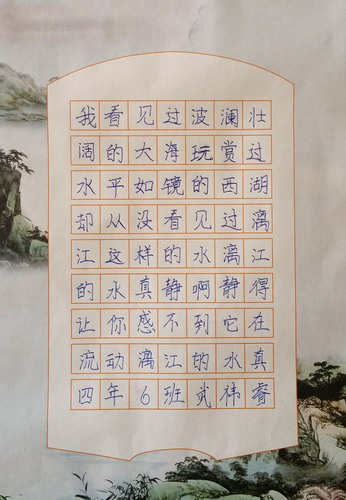 我看见过波澜壮
阔的大海玩赏过
水平如镜的西湖
却从没看见过漓
江这样的水漓江
的水真静啊静得
让你感不到它在
流动漓江的水真
四年6班武祎睿